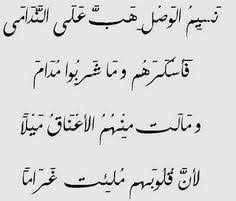 نَسِيمُ الوَصْلِ هَبَّ عَلَى النَّدَامَى
فَأَسْكَرَهُم وَمَا شَرِبُوا مُدَامَ
وَمَالَت مِنْهُمُ الأَعْنَاقُ مَيْلًا
لأَنَّ قُلُوبَهم مُلِئَت غَرَامًا